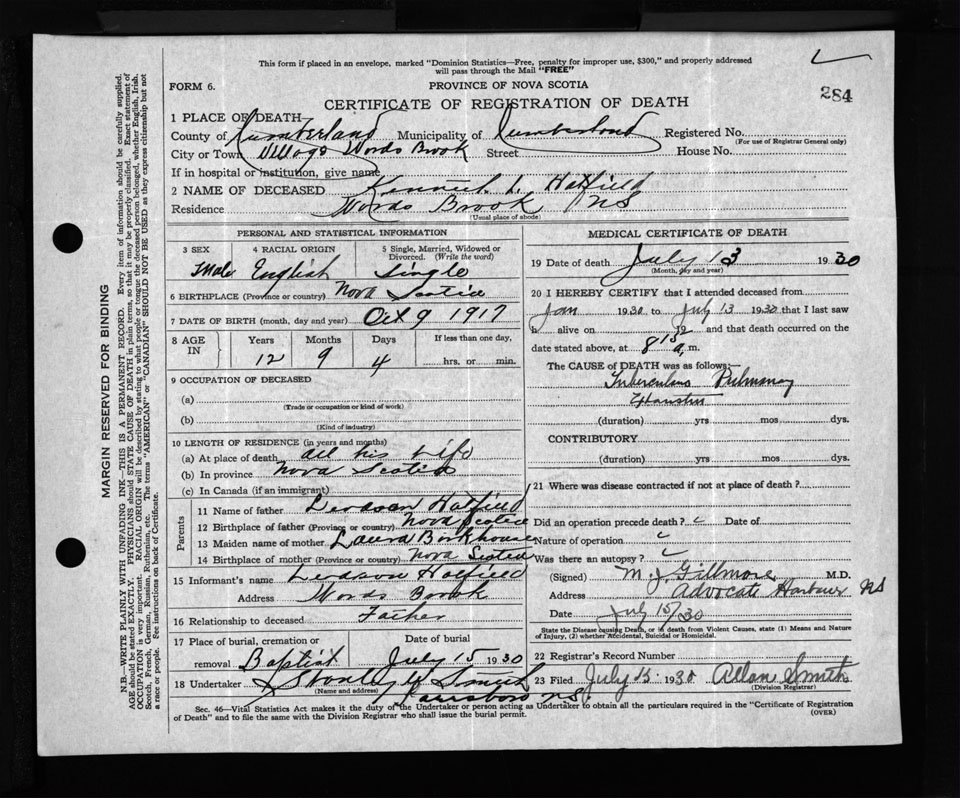 This form if placed in an envelope, marked "Dominion Statistics—Free, penalty for improper use, $300," and properly addressed
will pass through the Mail "FREE"
FORM 6.
PROVINCE OF NOVA SCOTIA
284
CERTIFICATE OF REGISTRATION OF DEATH
1 PLACE OF DEATH
County of Cumberland Municipality of Cumberland Registered No.
(For use of Registrar General only)
City or Town Village Words Brook Street House No.
If in hospital or institution, give name
2 NAME OF DECEASED Kenneth L Hatfield
Residence Words Brook NS
(Usual place of abode)
PERSONAL AND STATISTICAL INFORMATION
3 SEX 4 RACIAL ORIGIN 5 Single, Married, Widowed or
Divorced. (Write the word)
Male English Single
6 BIRTHPLACE (Province or country) Nova Scotia
7 DATE OF BIRTH (month, day and year) Oct 9 1917
8 AGE IN Years Months Days If less than one day,
12 9 4 hrs. or min.
9 OCCUPATION OF DECEASED
(a)
(Trade or occupation or kind of work)
(b)
(Kind of industry)
10 LENGTH OF RESIDENCE (in years and months)
(a) At place of death all his life
(b) In province Nova Scotia
(c) In Canada (if an immigrant)
Parents
11 Name of father Hatfield
12 Birthplace of father (Province or country) Nova Scotia
13 Maiden name of mother Laura
14 Birthplace of mother (Province or country) Nova Scotia
15 Informant's name Hatfield
Address Words Brook
16 Relationship to deceased Father
17 Place of burial, cremation or Date of burial
removal Baptist July 15 1930
18 Undertaker Smith
(Name and address)
Parrsboro NS
MEDICAL CERTIFICATE OF DEATH
19 Date of death July 13 1930
(Month, day and year)
20 I HEREBY CERTIFY that I attended deceased from
Jan 1930 to July 13 1930 that I last saw
h alive on 19 and that death occurred on
date stated above, at 8 15 a. m.
The CAUSE of DEATH was as follows:—
Tuberculosis Pulmonary
(duration) yrs mos dys.
CONTRIBUTORY
(duration) yrs mos dys.
21 Where was disease contracted if not at place of death?
Did an operation precede death? Date of
Nature of operation
Was there an autopsy?
(Signed) M. J. Gillmore M.D.
Address Advocate Harbour NS
Date July 15/30
State the Disease causing Death, or in death from Violent Causes, state (1) Means and
Nature of Injury, (2) whether Accidental, Suicidal or Homicidal.
22 Registrar's Record Number
23 Filed July 15 1930 Allan Smith
(Division Registrar)
Sec. 46—Vital Statistics Act makes it the duty of the Undertaker or person acting as Undertaker to obtain all the particulars required in the "Certificate of Registration
of Death" and to file the same with the Division Registrar who shall issue the burial permit.
(OVER)
MARGIN RESERVED FOR BINDING
N.B.—WRITE PLAINLY WITH UNFADING INK—THIS IS A PERMANENT RECORD. Every item of information should be carefully supplied.
AGE should be stated EXACTLY. PHYSICIANS should STATE CAUSE OF DEATH in plain terms, so that it may be properly classified. Exact statement of
OCCUPATION is very important. RACIAL ORIGIN will be described by stating to what people or tongue the deceased person belonged, whether English, Irish,
Scotch, French, German, Russian, Ruthenian, etc. The terms "AMERICAN" or "CANADIAN" SHOULD NOT BE USED as they express citizenship but not
a race or people. See instructions on back of Certificate.